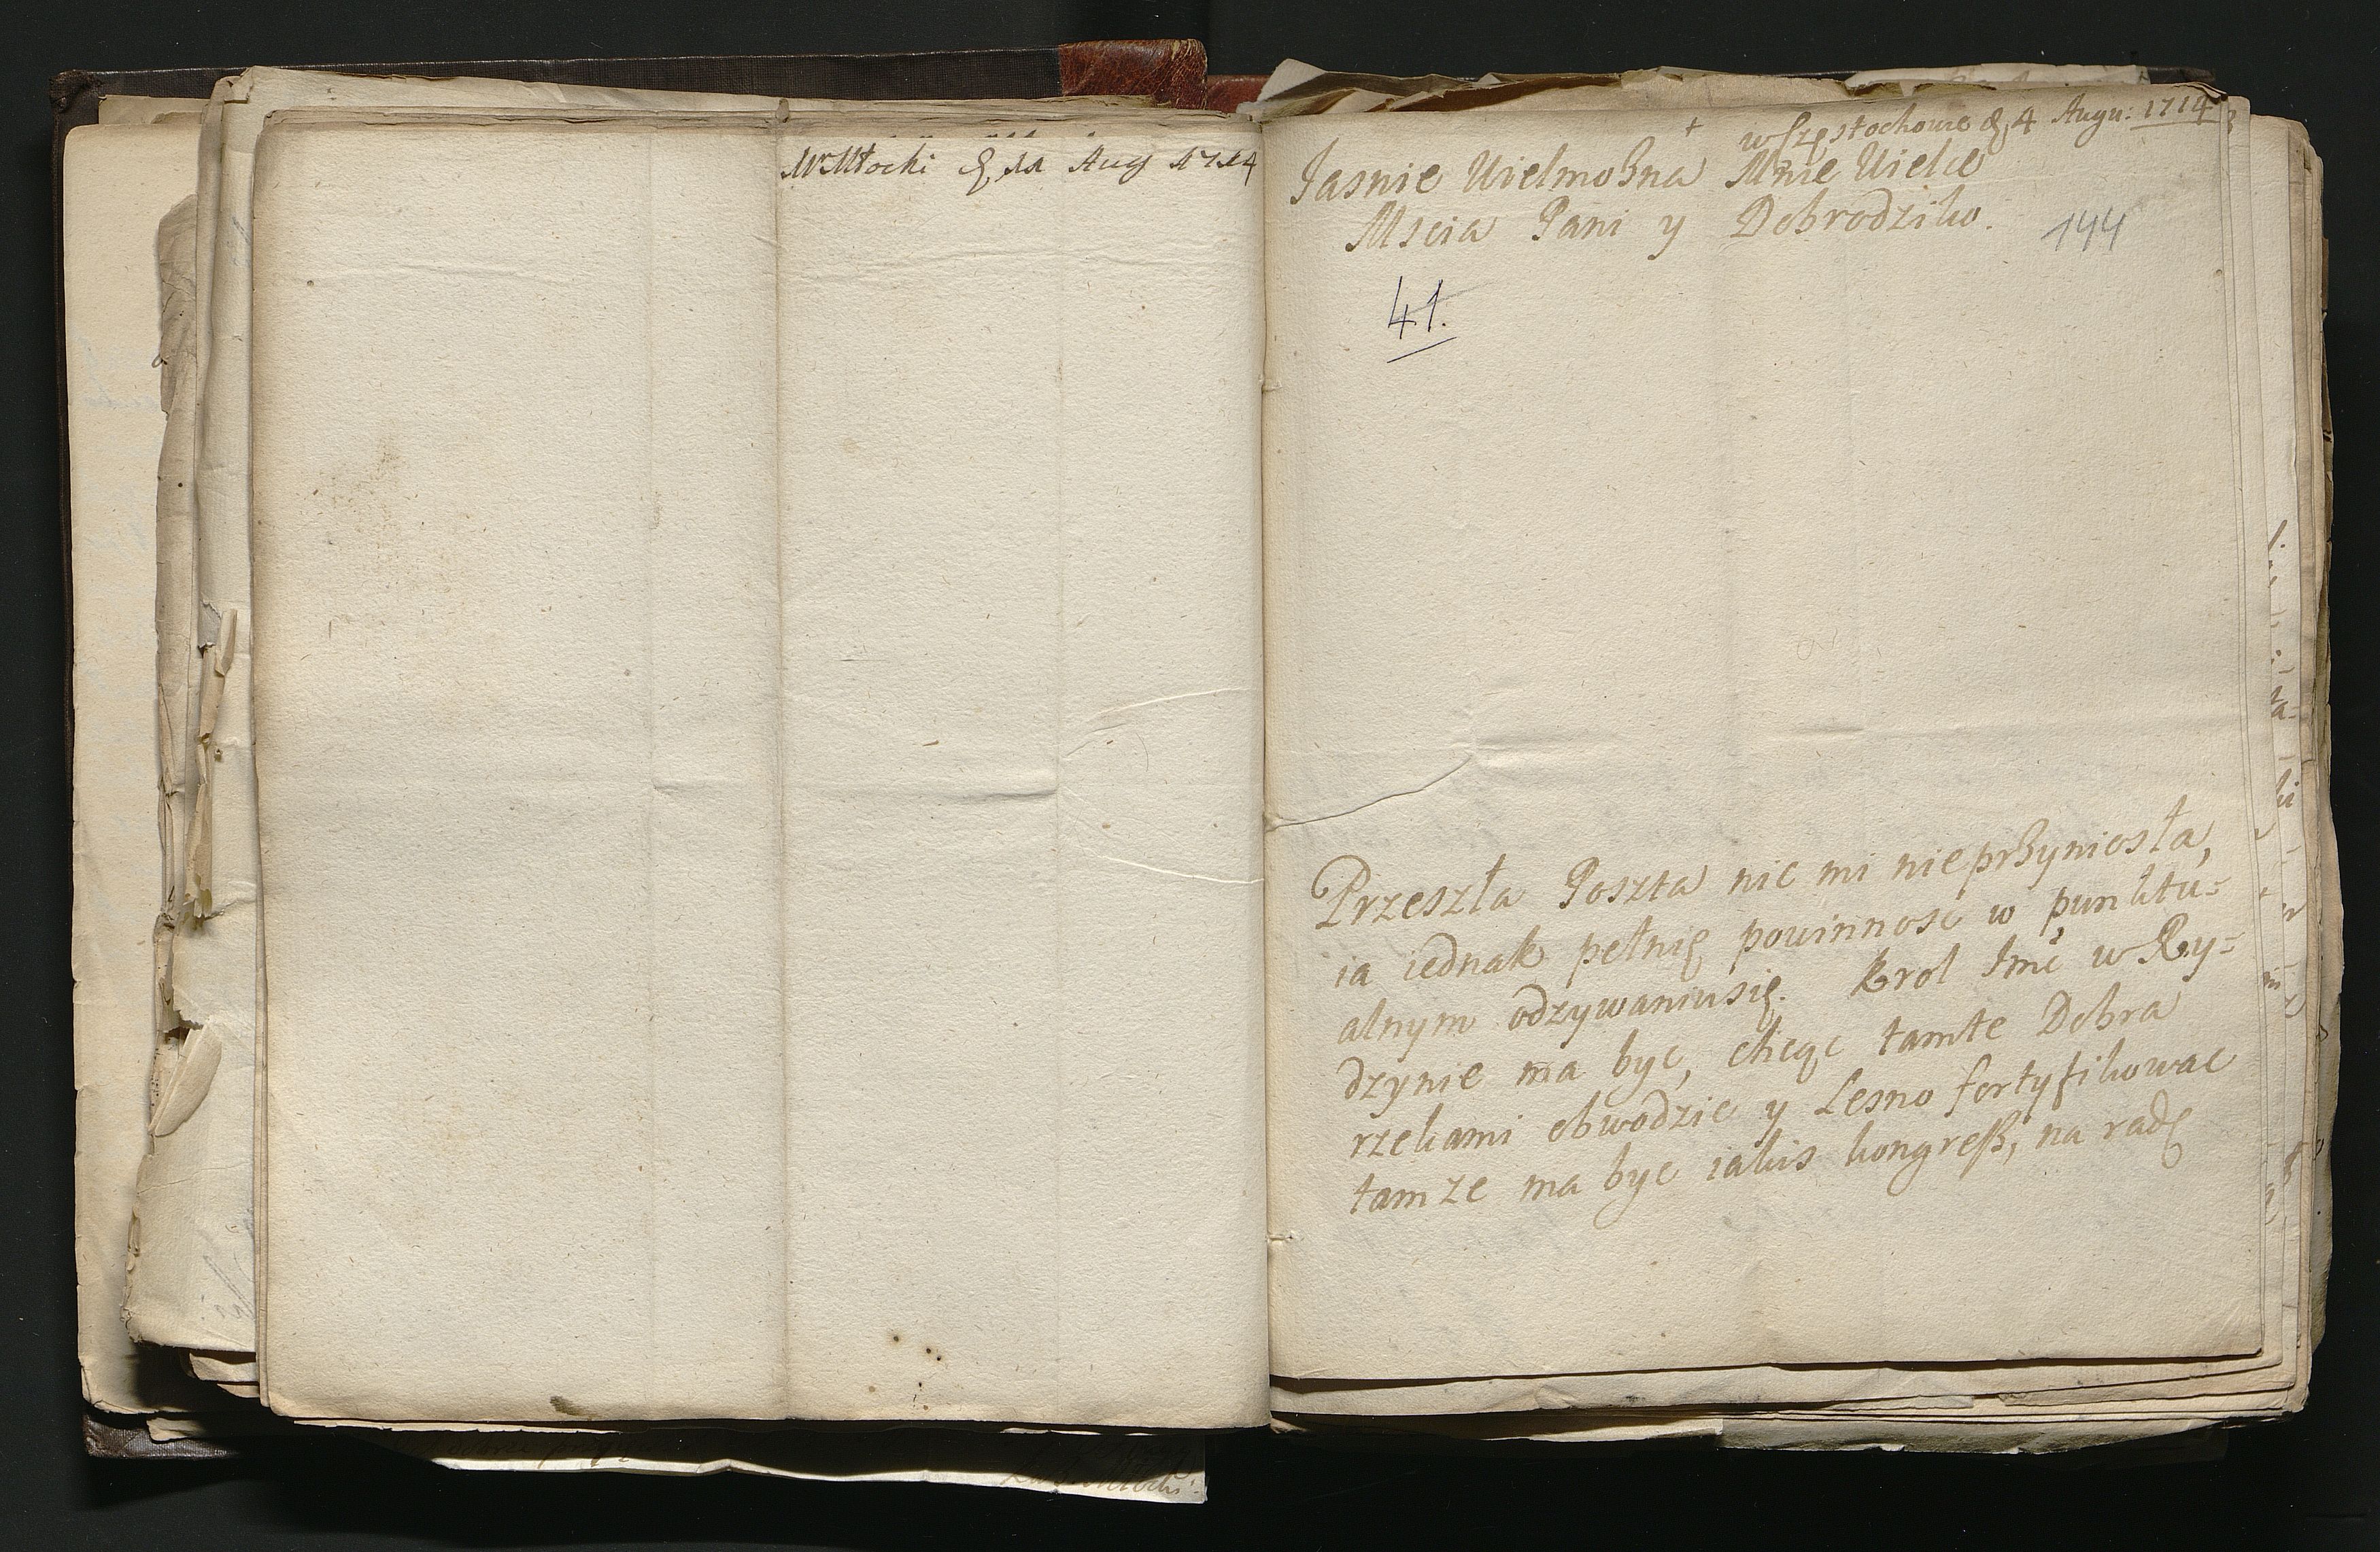 Mr Młocki d 11 Aug 1714
w Częstochowie d, 4 Augu: 1714
Jasnie Wielmożna Mnie Wielce
Mscia Pani y Dobrodziko.
144
41.
Przeszła Poszta nic mi nie przyniosła,
ia iednak pełnię powinnosc w punktu=
alnym odzywaniusię. Krol Jmć w Ry=
dzynie ma byc, chcąc tamte Dobra
rzekami obwodzic y Lesno fortyfikowac
tamze ma byc iakis kongreß, na radę